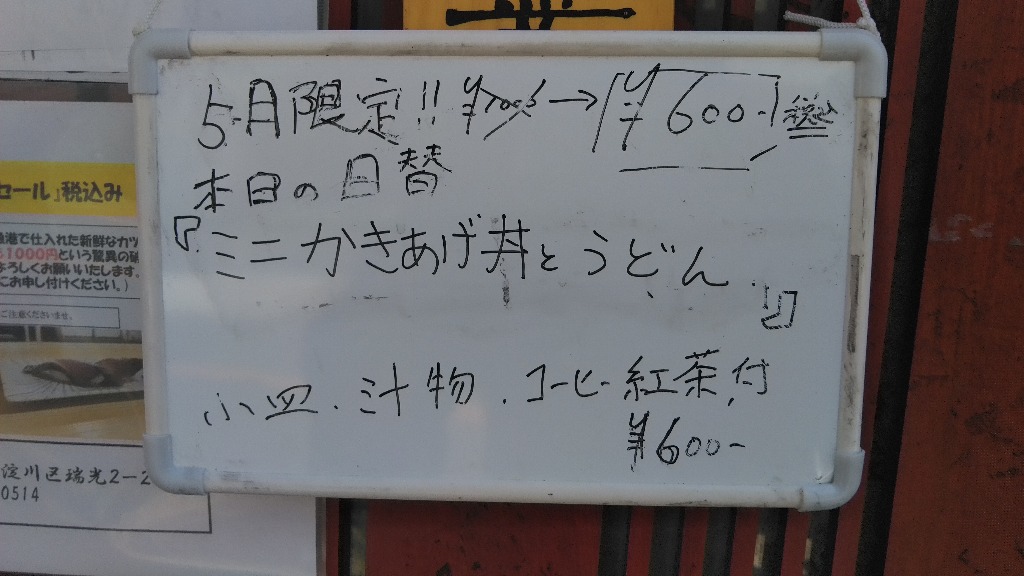 5月限定!! ¥700 → ¥600- 税込
本日の日替
『ミニかきあげ丼とうどん』
小皿、汁物、コーヒー紅茶付
¥600-
セール』税込み
港で仕入れた新鮮なカツ
1000円という驚異の
よろしくお願いいたします
にお申し付けください。)
ご注意くださいませ。
淀川区瑞光2-2
0514